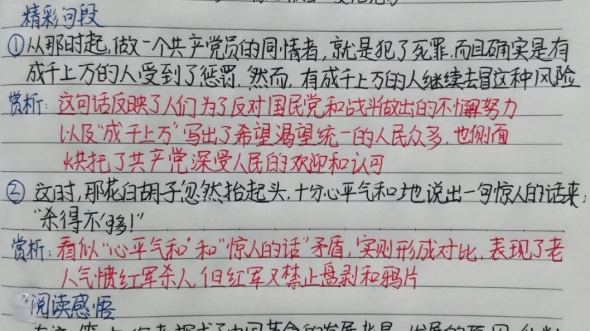 精彩句段
①从那时起，做一个共产党员的同情者，就是犯了死罪，而且确实是有
成千上万的人受到了惩罚，然而，有成千上万的人继续去冒这种风险
赏析：这句话反映了人们为了反对国民党和战斗做出的不懈努力
以及“成千上万”写出了希望渴望统一的人民众多，也侧面
烘托了共产党深受人民的欢迎和认可
②这时，那花白胡子忽然抬起头，十分心平气和地说出一句惊人的话来：
“杀得不够！”
赏析：看似“心平气和”和“惊人的话”矛盾，实则形成对比，表现了老
人气愤红军杀人，但红军又禁止盘剥和鸦片
阅读感悟